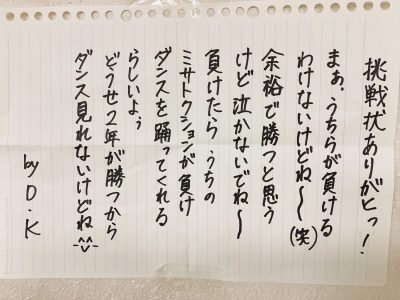 挑戦状ありがとっ!
まぁ、うちらが負ける
わけないけどね〜(笑)
余裕で勝つと思う
けど泣かないでね〜
負けたら、うちの
ミサトクションが負け
ダンスを踊ってくれる
らしいよぅ
どうせ2年が勝つから
ダンス見れないけどね^^
by O.K